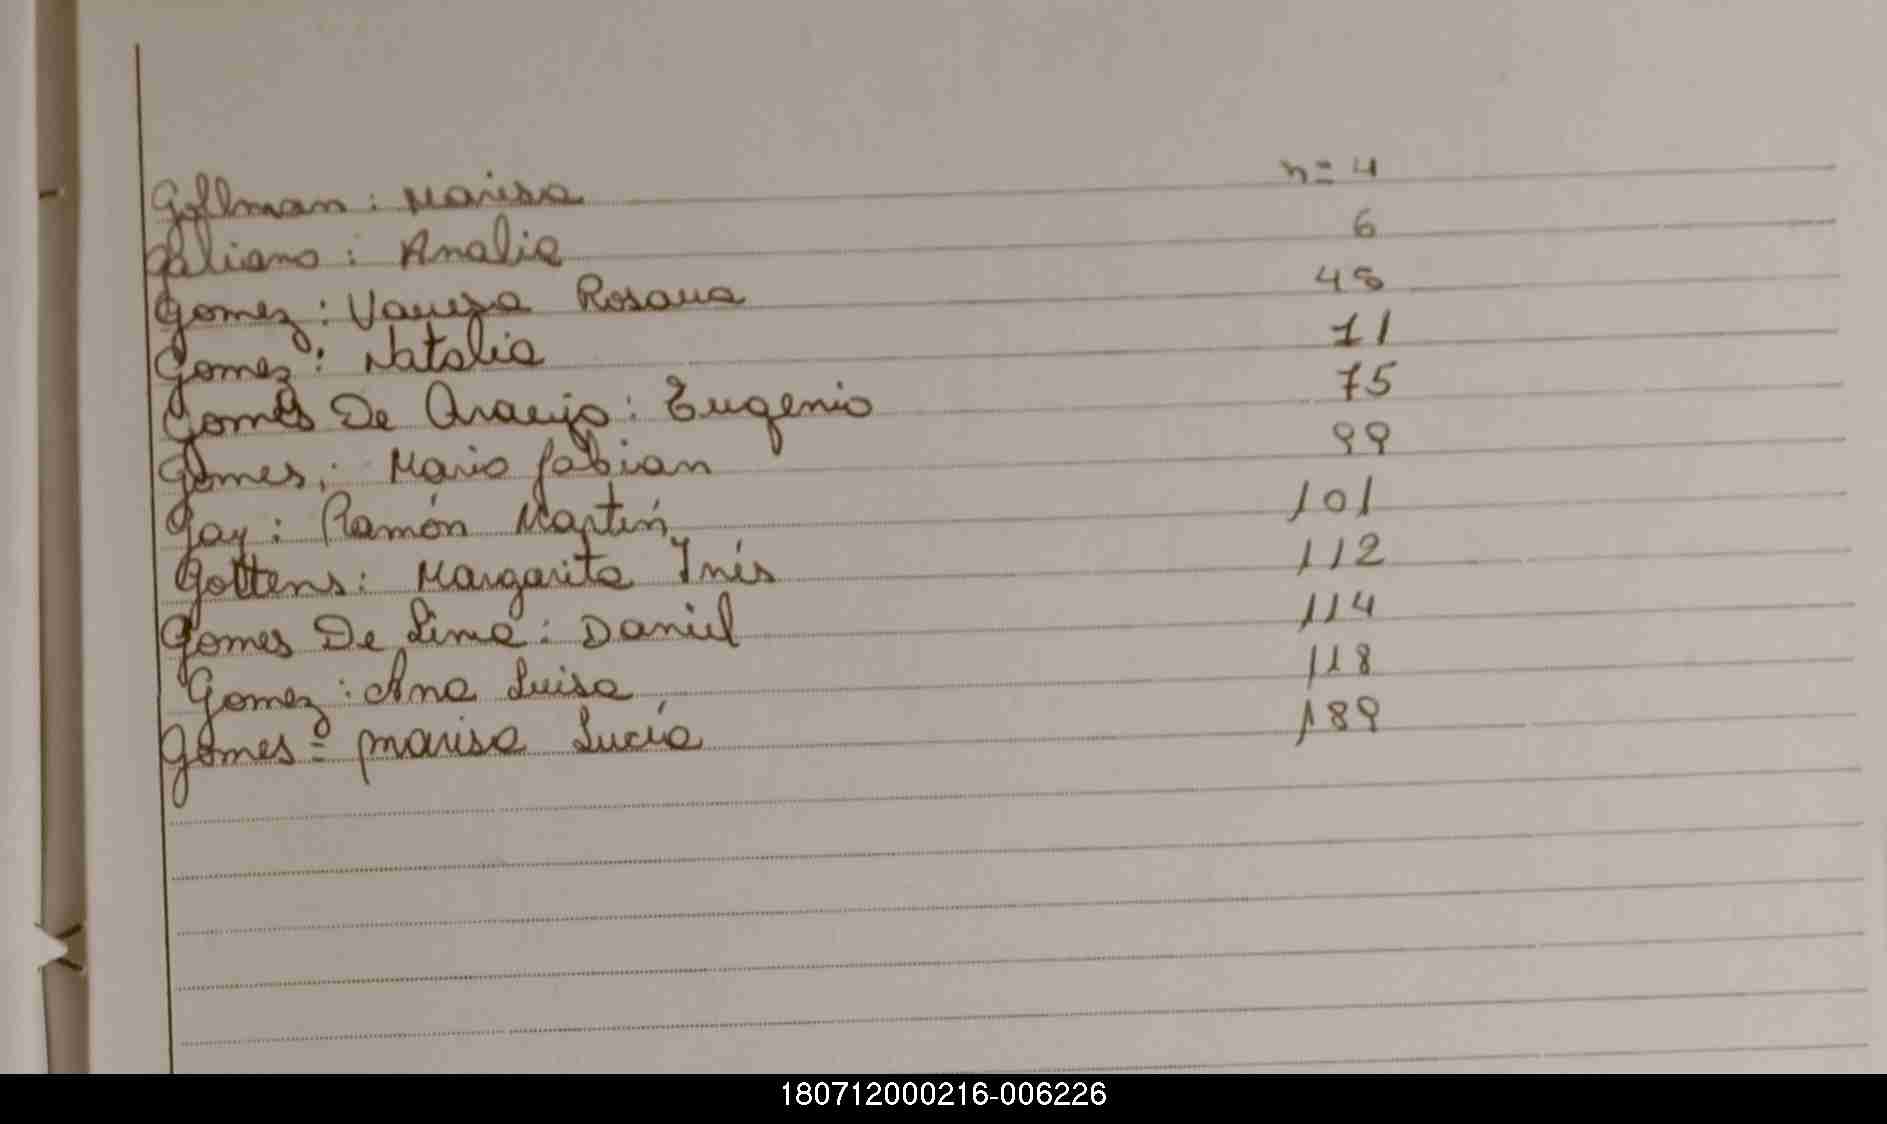 Gollman: Marisa n= 4
Galiano: Analia 6
Gomez: Vanesa Rosana 48
Gomez: Natalia 71
Gomes De Araujo: Eugenio 75
Gomes: Mario fabian 99
Gay: Ramón Martín 101
Gottens: Margarita Inés 112
Gomes De Lima: Daniel 114
Gomez: Ana Luisa 118
Gomes= Marisa Lucía 189
180712000216-006226